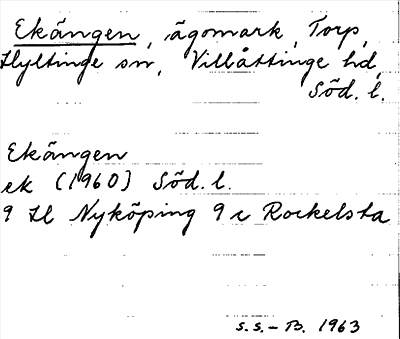 Ekängen, ägomark, Torp,
Hyltinge sn, Villåttinge hd,
Söd. l.
Ekängen
ek (1960) Söd. l.
9 H Nyköping 9 c Rockelsta
S.S.-B. 1963